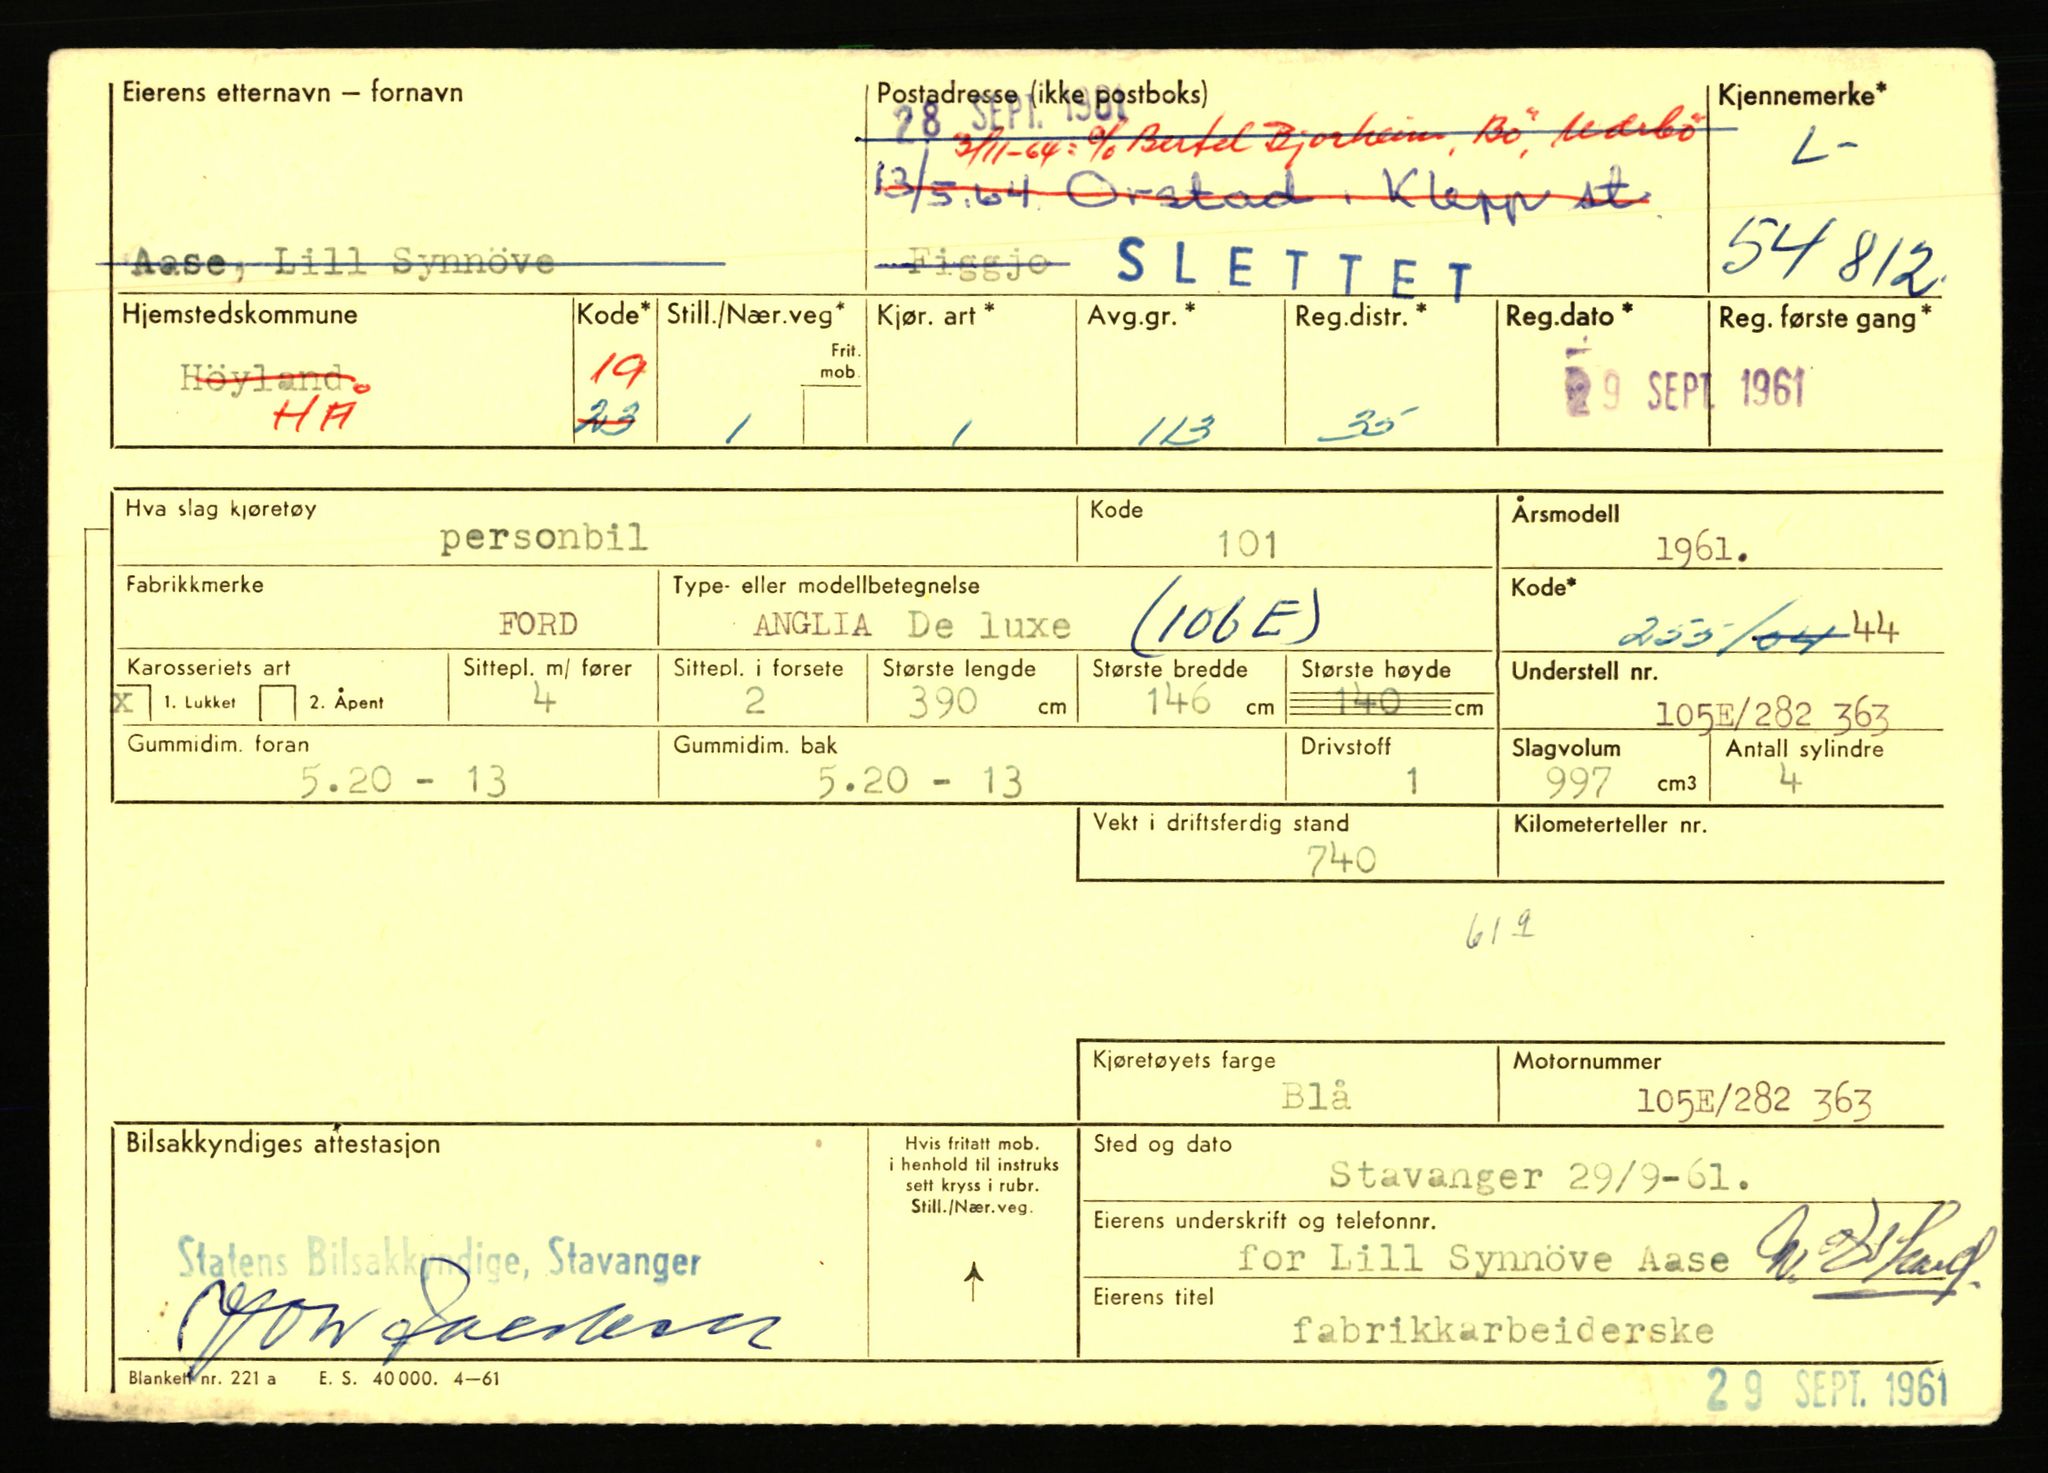 Eierens etternavn — fornavn
Postadresse (ikke postboks)
Kjennemerke*
28 SEPT. 1961
3/11-64: c/o Bertel Bjorheim, Bö, Nærbö
L-
13/5.64 Orstad, Klepp st.
Aase, Lill Synnöve
Figgjo
SLETTET
54 812.
Hjemstedskommune
Kode*
Still./Nær.veg*
Kjør. art*
Avg.gr.*
Reg.distr.*
Reg.dato*
Reg. første gang*
Frit. mob.
Höyland.
HÅ
19
23
1
1
113
35
29 SEPT. 1961
Hva slag kjøretøy
personbil
Kode
101
Årsmodell
1961.
Fabrikkmerke
FORD
Type- eller modellbetegnelse
ANGLIA De luxe (106E)
Kode*
255/04 44
Karosseriets art
x 1. Lukket 2. Åpent
Sittepl. m/ fører
4
Sittepl. i forsete
2
Største lengde
390 cm
Største bredde
146 cm
Største høyde
140 cm
Understell nr.
105E/282 363
Gummidim. foran
5.20 - 13
Gummidim. bak
5.20 - 13
Drivstoff
1
Slagvolum
997 cm3
Antall sylindre
4
Vekt i driftsferdig stand
740
Kilometerteller nr.
619
Kjøretøyets farge
Blå
Motornummer
105E/282 363
Bilsakkyndiges attestasjon
Statens Bilsakkyndige, Stavanger
Hvis fritatt mob.
i henhold til instruks
sett kryss i rubr.
Still./Nær.veg.
Sted og dato
Stavanger 29/9-61.
Eierens underskrift og telefonnr.
for Lill Synnöve Aase
Eierens titel
fabrikkarbeiderske
Blankett nr. 221 a E. S. 40 000. 4—61
29 SEPT. 1961